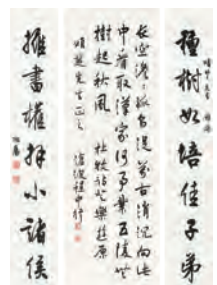 種樹如培佳子弟
長空澹澹孤鳥沒萬古消沉向此
中看取漢家何事業五陵無
樹起秋風 杜牧詩登樂遊原
先生正之 滄波程中行
擁書權拜小諸侯